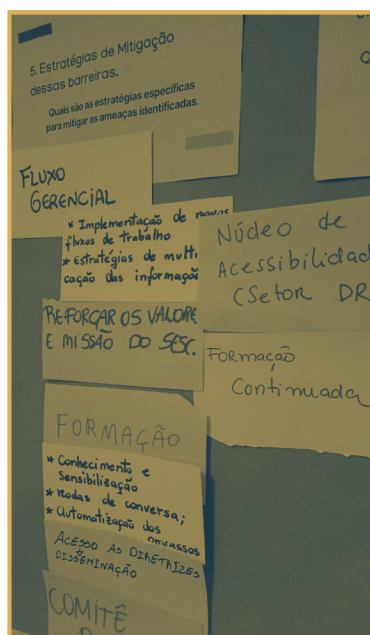 5. Estratégias de Mitigação
dessas barreiras.
Quais são as estratégias específicas
para mitigar as ameaças identificadas.
FLUXO
GERENCIAL
* Implementação de novos
fluxos de trabalho
* Estratégias de multi
cação das informaçõ
Núdeo de
Acessibilidad
(Setor DR
REFORÇAR OS VALORE
E MISSÃO DO SESC.
FORMAÇÃO
Continuada
FORMAÇÃO
* Conhecimento e
Sensibilização
* Rodas de conversa;
* Automatização dos
ACESSO AS DIRETRIZES
DISSEMINAÇÃO
COMITÊ